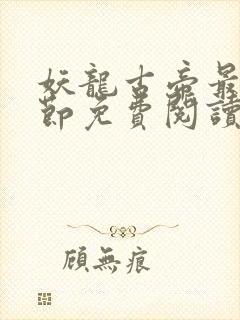 妖龍古帝最
節免費閱讀
顧無痕